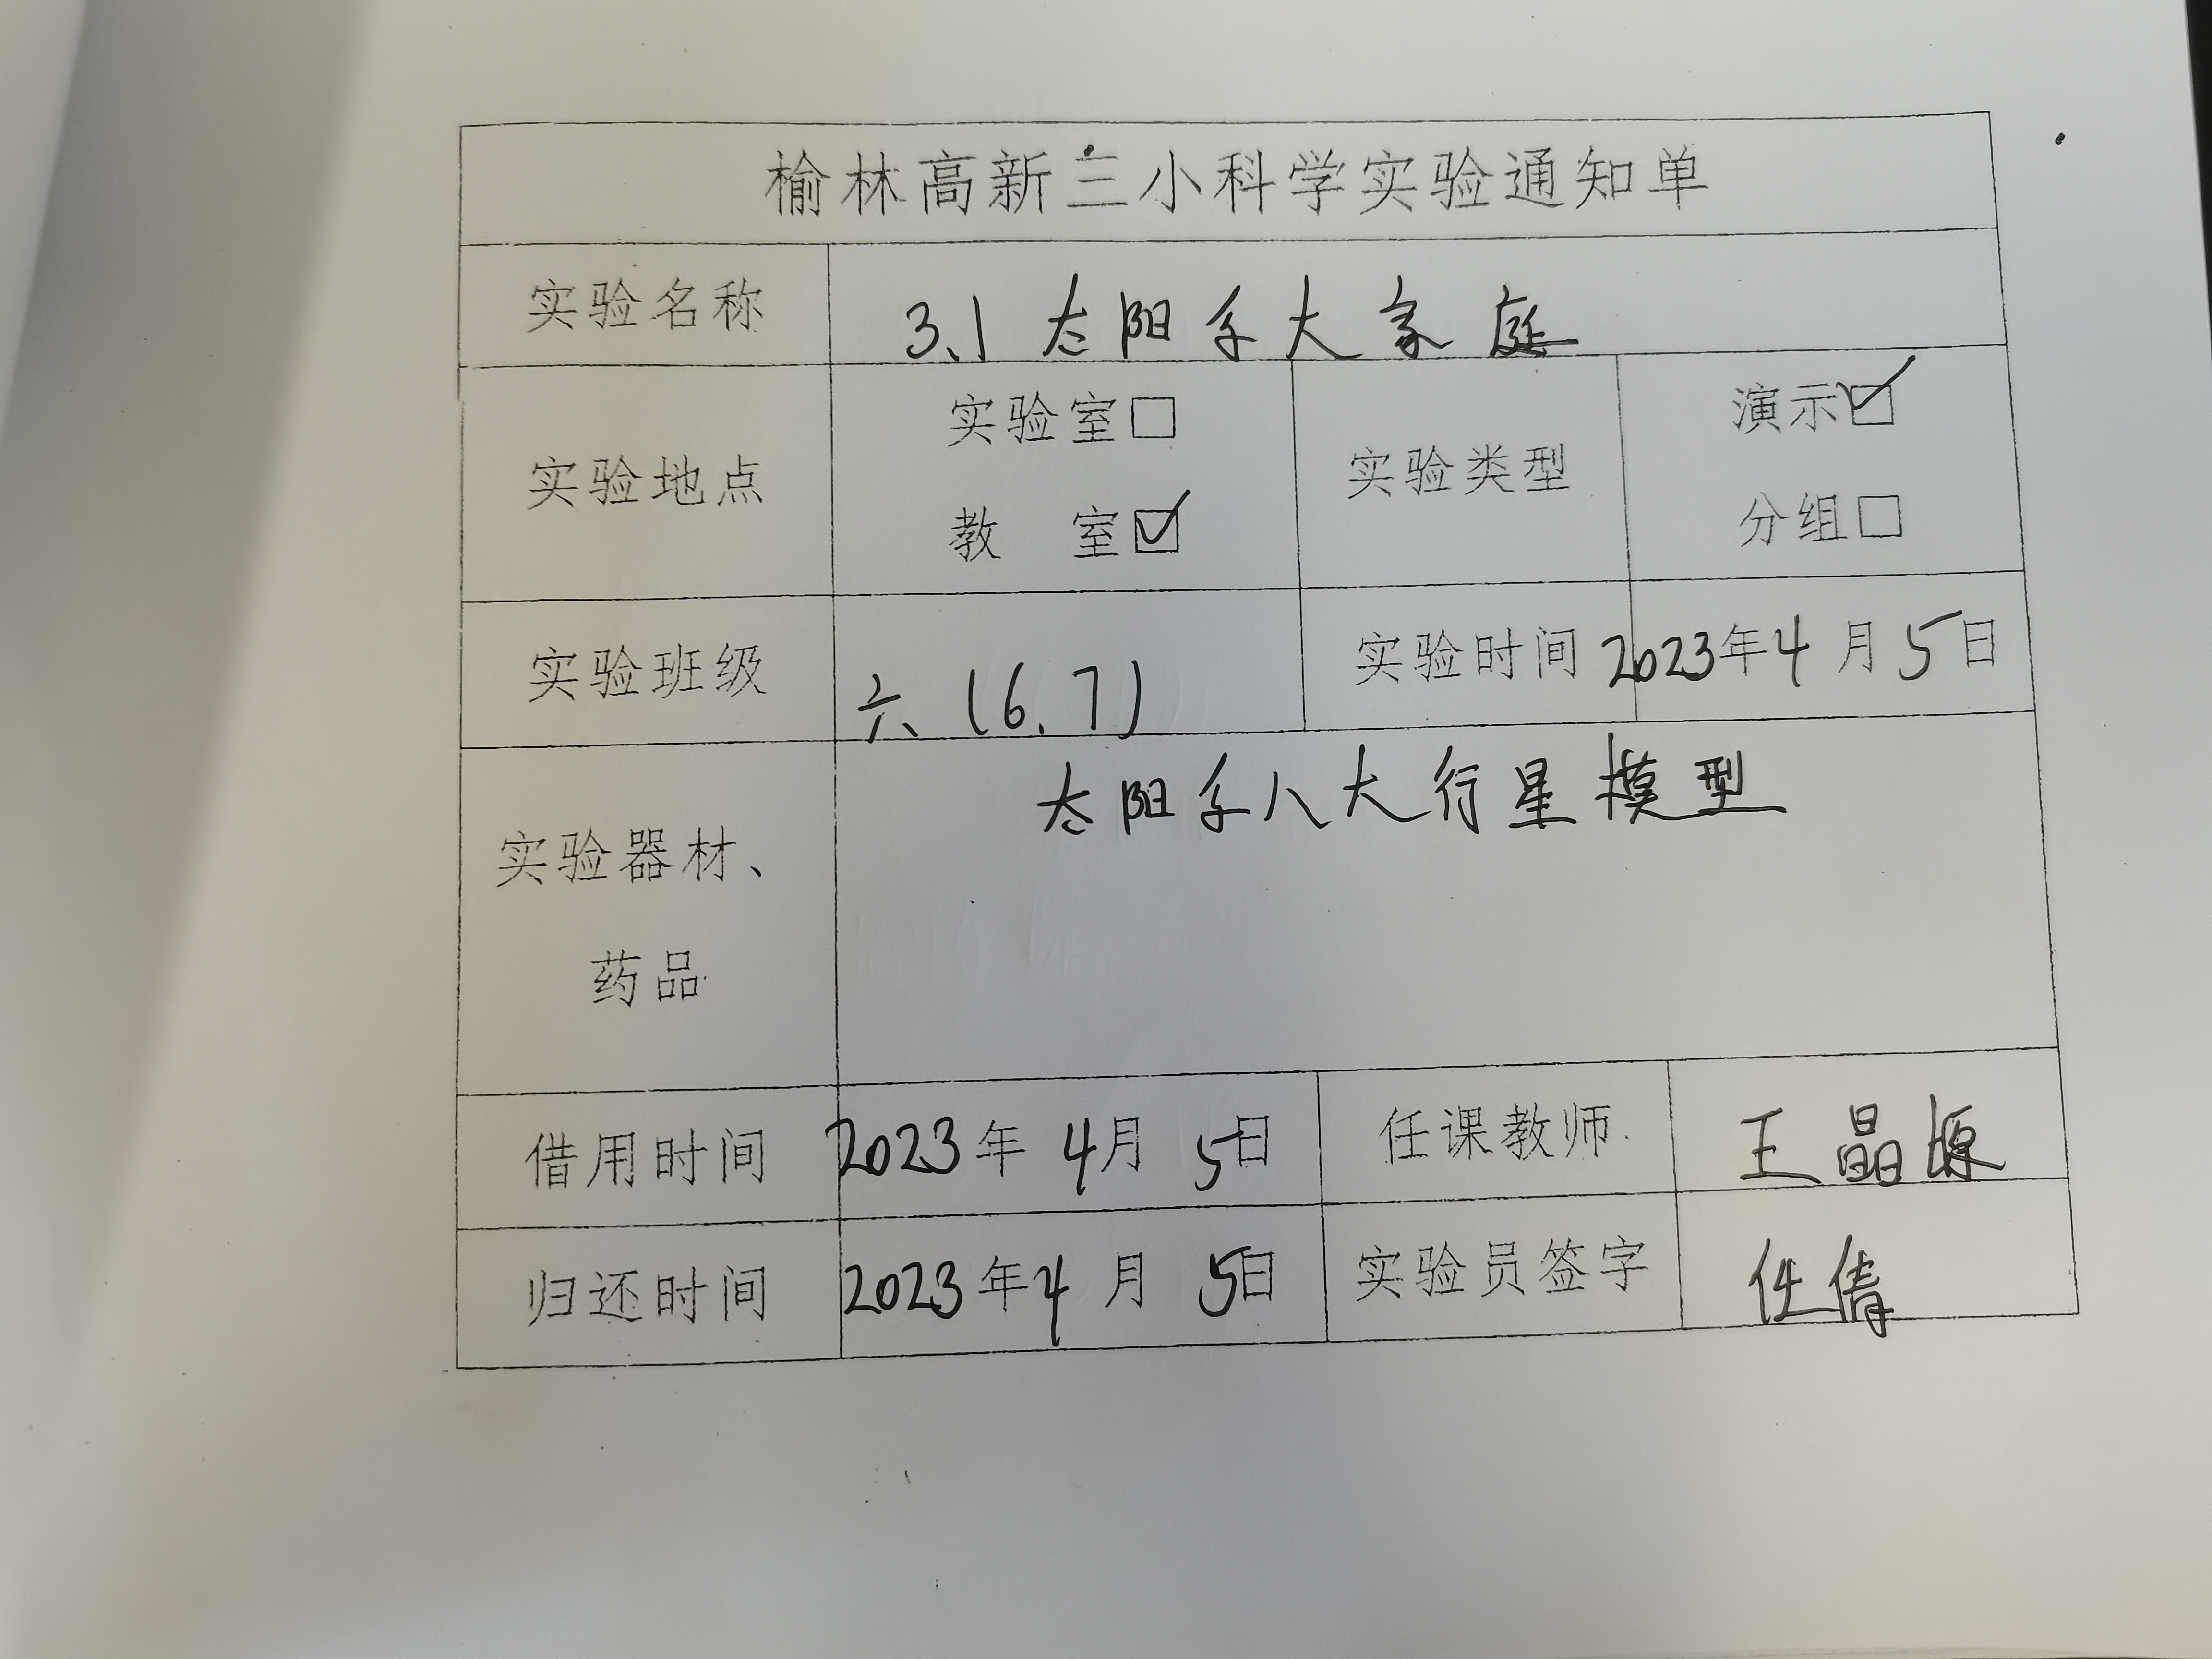 榆林高新三小科学实验通知单
实验名称 3.1 太阳系大家庭
实验地点 实验室□ 教 室☑ 实验类型 演示☑ 分组□
实验班级 六(6.7) 实验时间 2023年4月5日
实验器材、药品 太阳系八大行星模型
借用时间 2023年4月5日 任课教师 王晶
归还时间 2023年4月5日 实验员签字 任倩